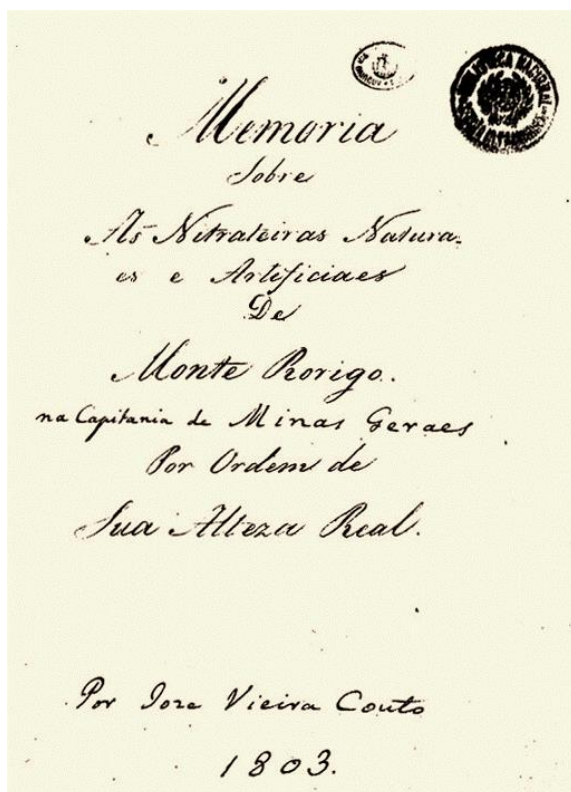 Memoria
Sobre
As Nitrateiras Natura-
es e Artificiaes
De
Monte Rorigo.
na Capitania de Minas Geraes
Por Ordem de
Sua Alteza Real.
Por Joze Vieira Couto
1803.